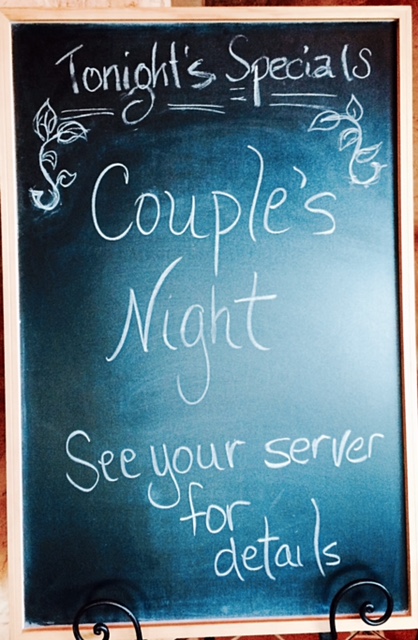 Tonight's Specials
Couple's
Night
See your server
for
details